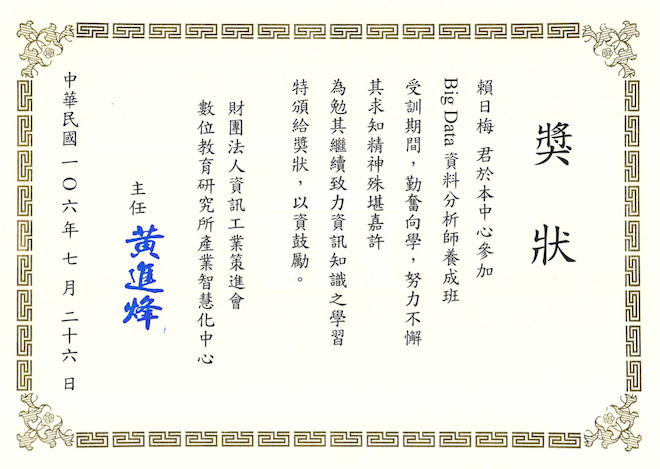 獎狀
賴日梅 君於本中心參加
Big Data 資料分析師養成班
受訓期間，勤奮向學，努力不懈
其求知精神殊堪嘉許
為勉其繼續致力資訊知識之學習
特頒給獎狀，以資鼓勵。
財團法人資訊工業策進會
數位教育研究所產業智慧化中心
主任 黃進烽
中華民國一〇六年七月二十六日